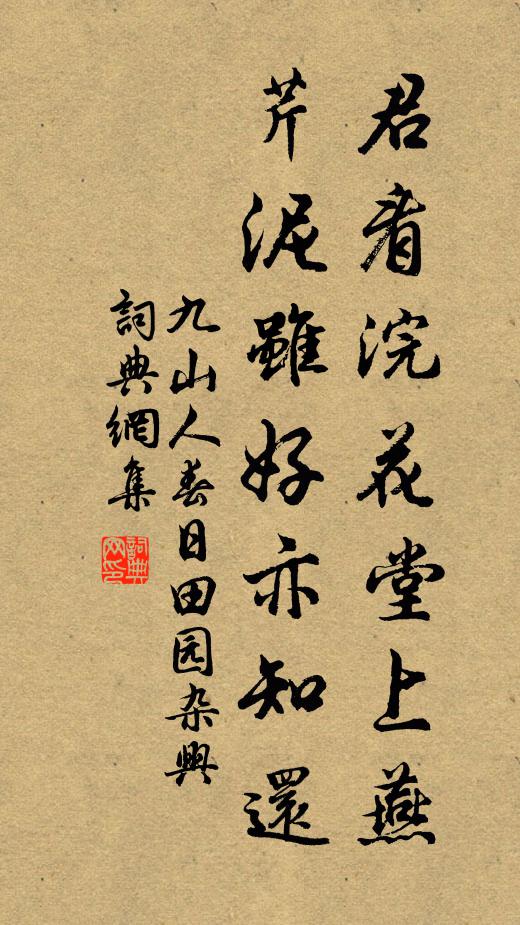 君看浣花堂上燕
芹泥雖好亦知還
九山人春日田园杂興
詞典網集
詞典网印